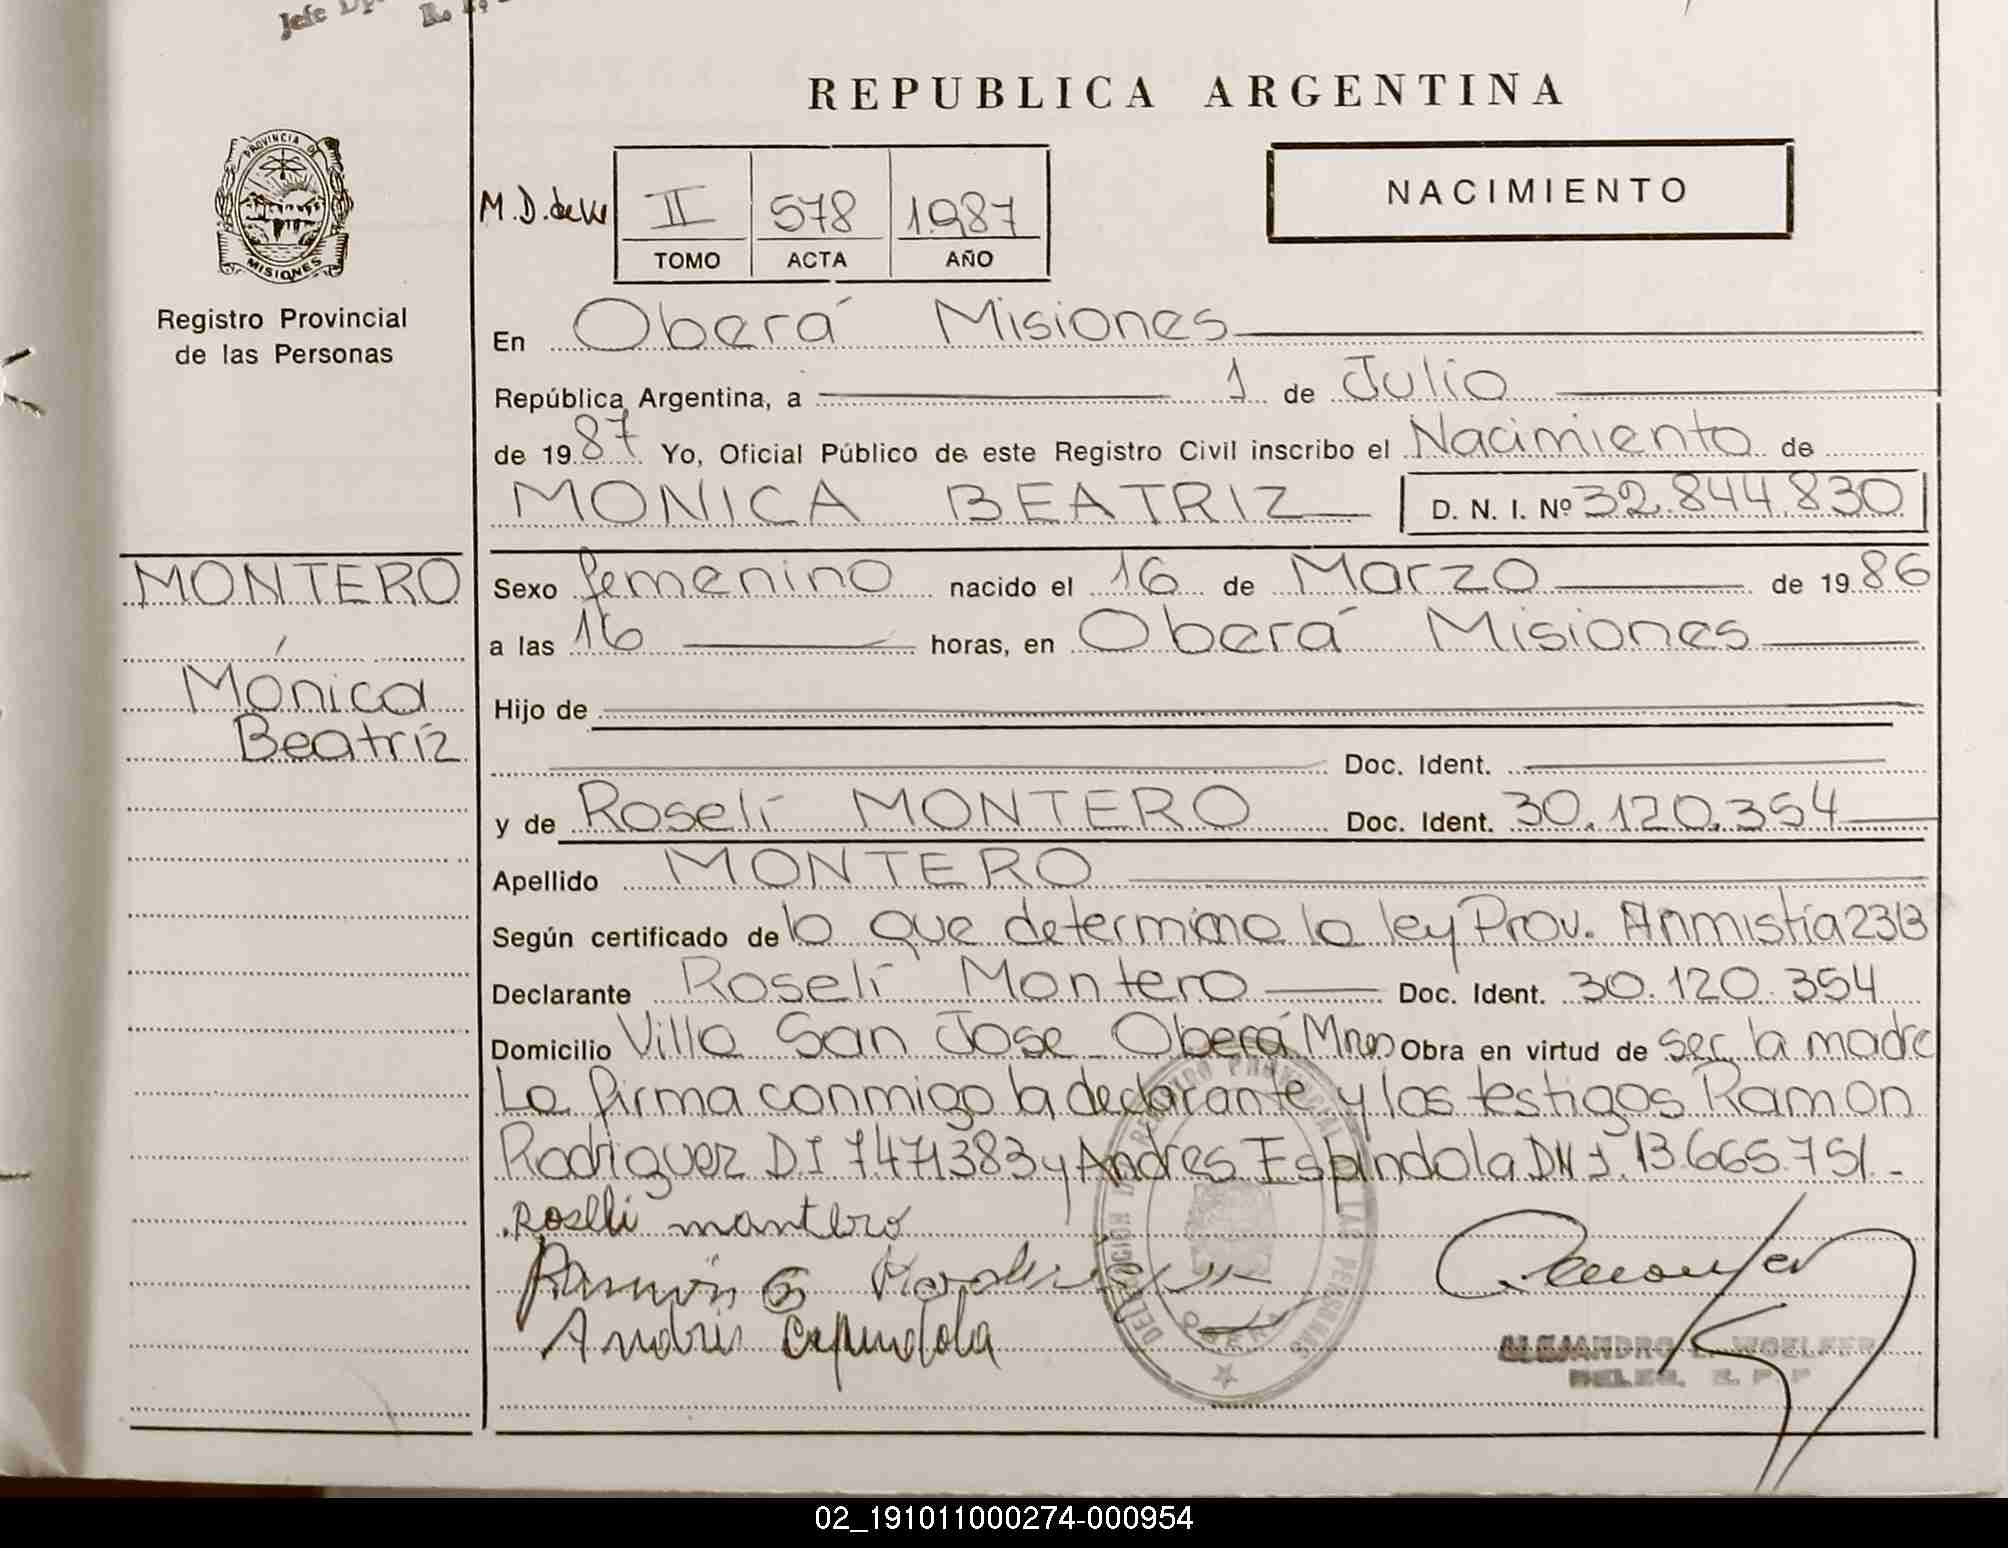 Jefe
REPUBLICA ARGENTINA
PROVINCIA DE
MISIONES
Registro Provincial
de las Personas
M.D.
II 578 1.987
TOMO ACTA AÑO
NACIMIENTO
En Oberá Misiones
República Argentina, a 1 de Julio
de 1987 Yo, Oficial Público de este Registro Civil inscribo el Nacimiento de
MONICA BEATRIZ D. N. I. Nº 32.844.830
MONTERO
Mónica
Beatríz
Sexo femenino nacido el 16 de Marzo de 1986
a las 16 horas, en Oberá Misiones
Hijo de
Doc. Ident.
y de Roselí MONTERO Doc. Ident. 30.120.354
Apellido MONTERO
Según certificado de lo que determina la ley Prov. Anmistía 2313
Declarante Roselí Montero Doc. Ident. 30.120.354
Domicilio Villa San Jose Oberá Mnes Obra en virtud de ser la madre
La firma conmigo la declarante y los testigos Ramon
Rodriguez D.I 7.471.383 y Andres Espindola DNI. 13.665.751.-
Roselli montero
Ramón G Rodriguez
Andres Espindola
DELEGACION DEL REGISTRO PROVINCIAL DE LAS PERSONAS
OBERA
ALEJANDRO L. WOELFER
DELEG. R. P. P
02_191011000274-000954